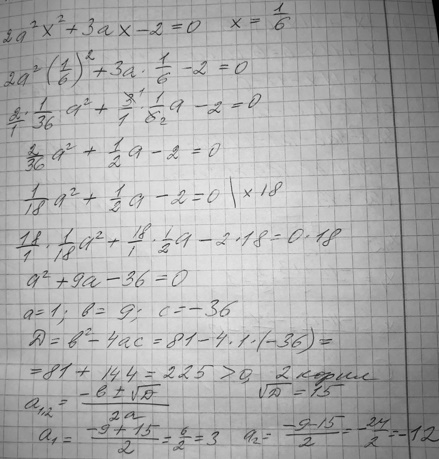 2a²x² + 3ax - 2 = 0    x = 1/6
2a²(1/6)² + 3a · 1/6 - 2 = 0
2/1 · 1/36 a² + 3¹/1 · 1/6₂ a - 2 = 0
2/36 a² + 1/2 a - 2 = 0
1/18 a² + 1/2 a - 2 = 0 | × 18
18/1 · 1/18 a² + 18/1 · 1/2 a - 2 · 18 = 0 · 18
a² + 9a - 36 = 0
a = 1; в = 9; c = -36
D = в² - 4ac = 81 - 4 · 1 · (-36) =
= 81 + 144 = 225 > 0, 2 корня
√D = 15
a₁,₂ = (-в ± √D)/2a
a₁ = (-9 + 15)/2 = 6/2 = 3    a₂ = (-9 - 15)/2 = -24/2 = -12